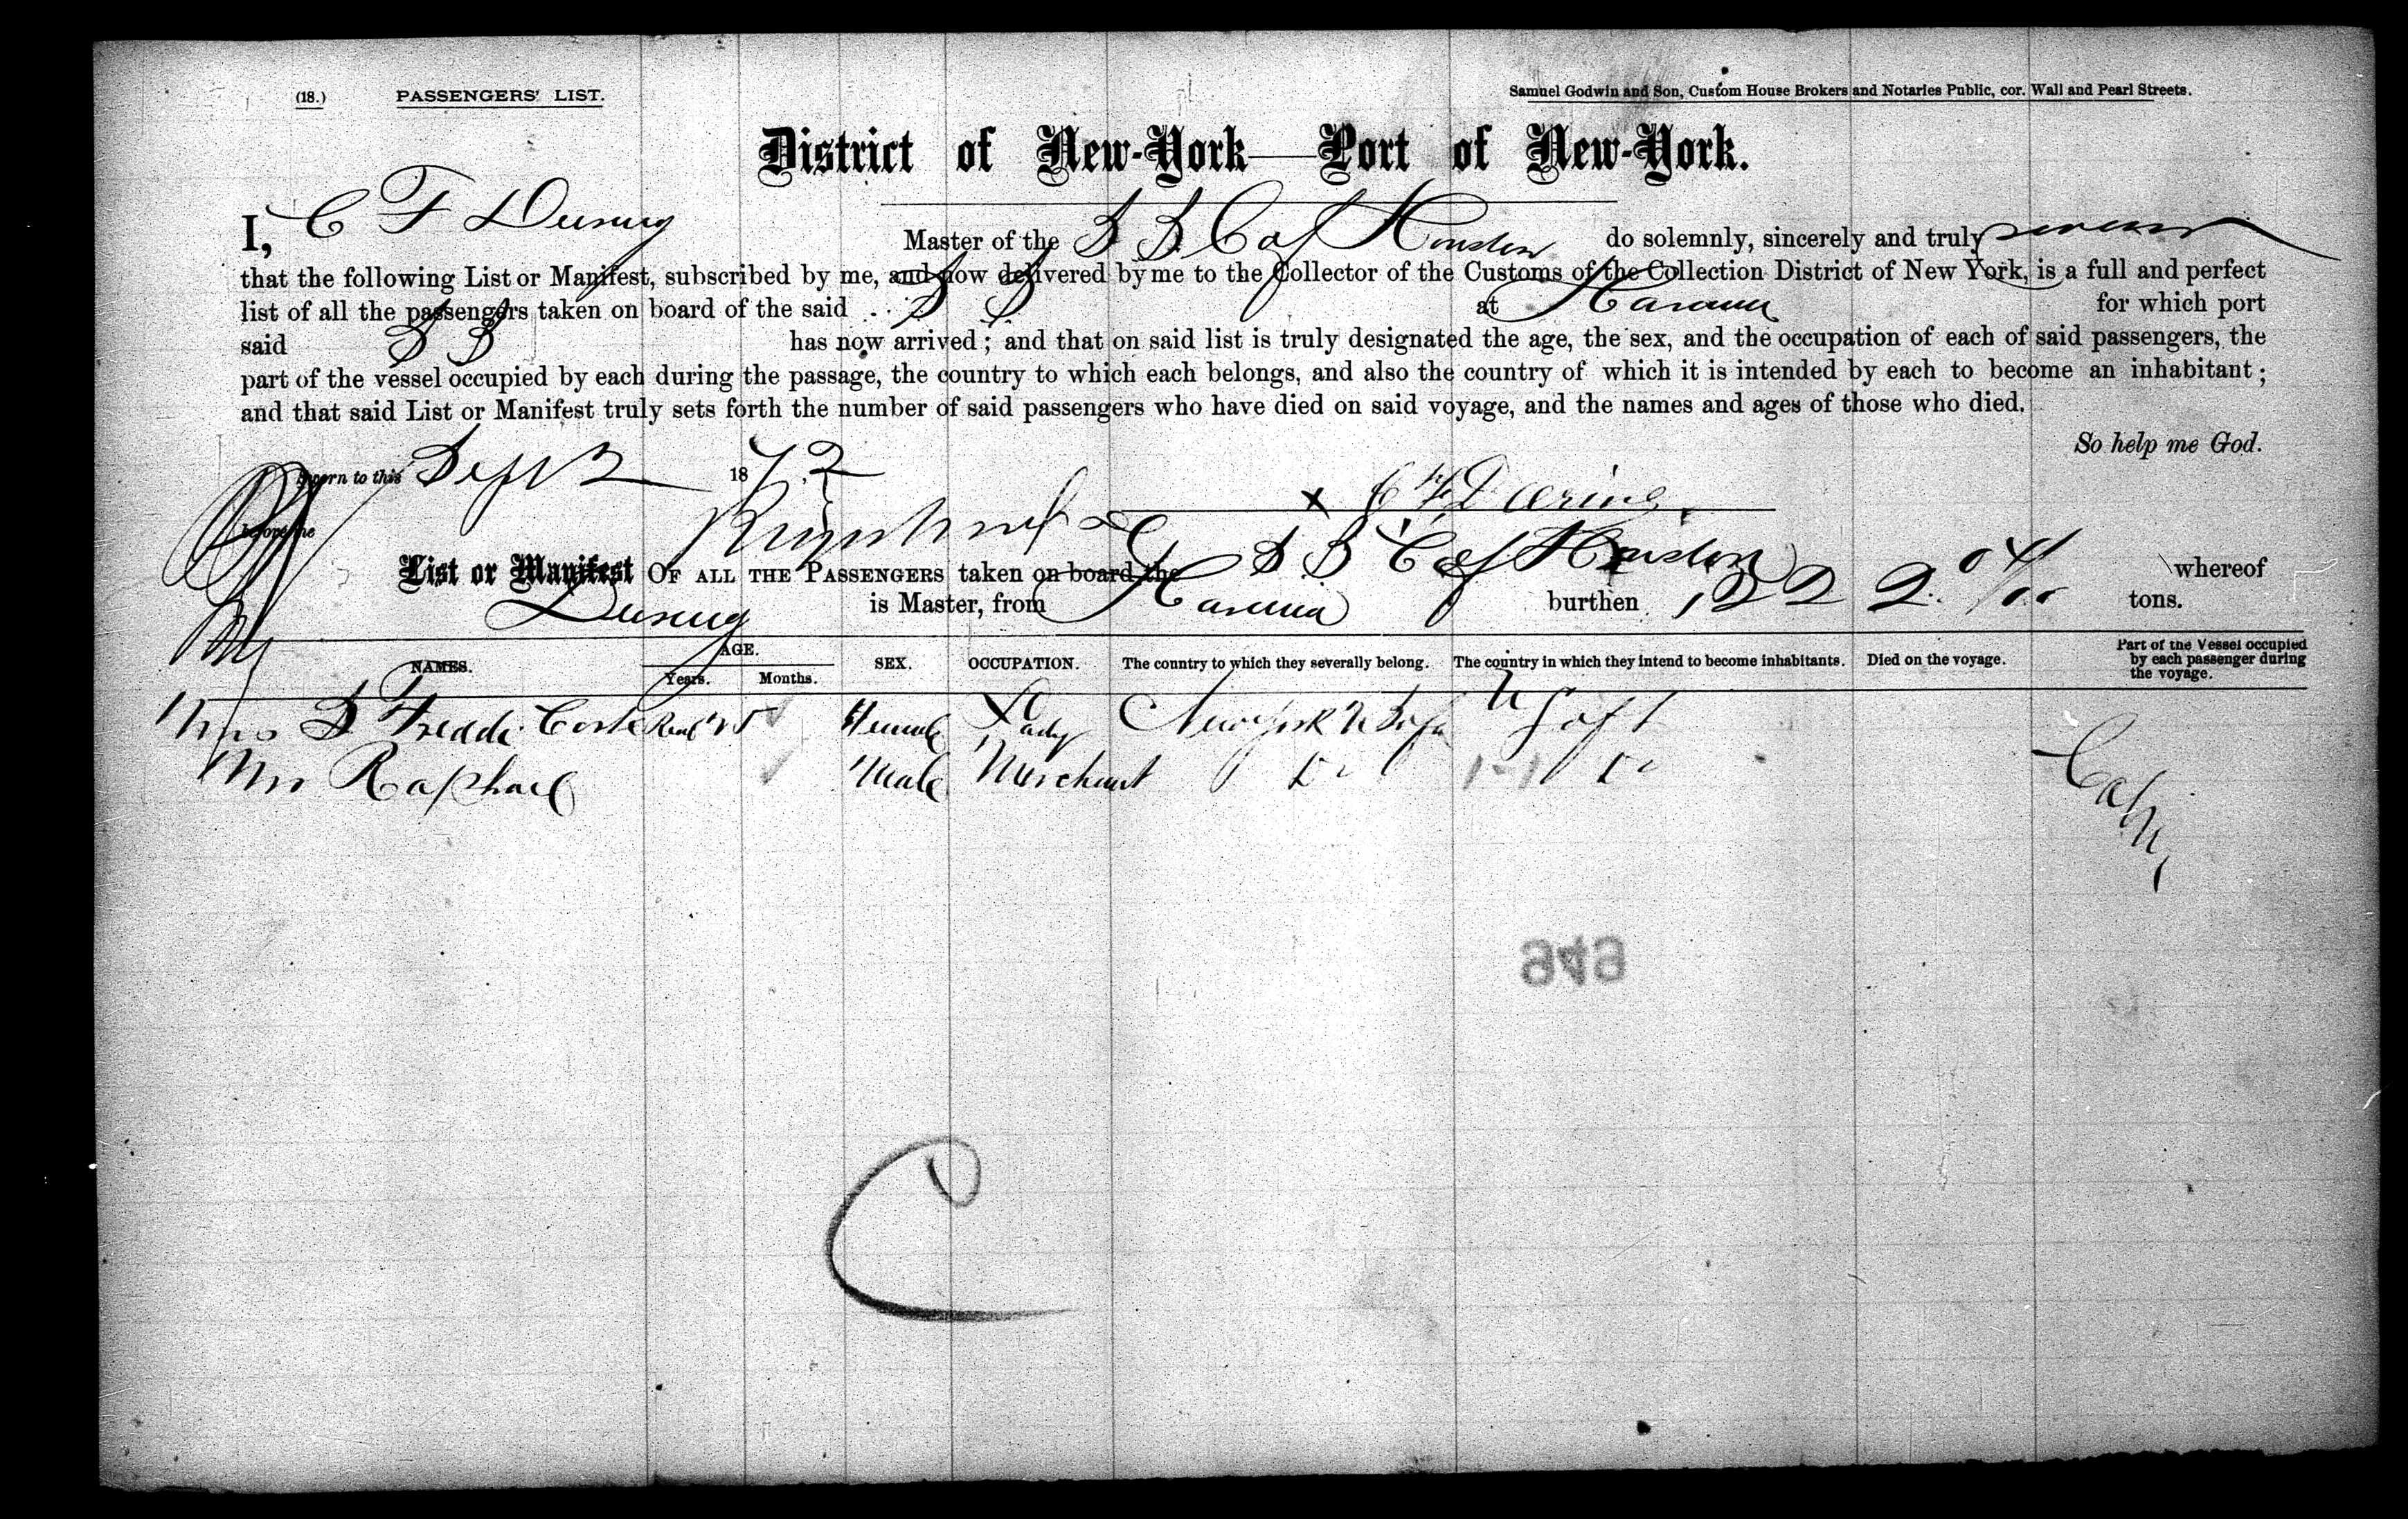 (18.) PASSENGERS' LIST. Samuel Godwin and Son, Custom House Brokers and Notaries Public, cor. Wall and Pearl Streets.
District of New-York—Port of New-York.
I, C F Deering Master of the S S C of Houston do solemnly, sincerely and truly swear
that the following List or Manifest, subscribed by me, and now delivered by me to the Collector of the Customs of the Collection District of New York, is a full and perfect
list of all the passengers taken on board of the said S S at Havana for which port
said S S has now arrived; and that on said list is truly designated the age, the sex, and the occupation of each of said passengers, the
part of the vessel occupied by each during the passage, the country to which each belongs, and also the country of which it is intended by each to become an inhabitant;
and that said List or Manifest truly sets forth the number of said passengers who have died on said voyage, and the names and ages of those who died.
So help me God.
Sworn to this Sept 2 1872
before me
C F Deering
List or Manifest OF ALL THE PASSENGERS taken on board the S S C of Houston whereof
Deering is Master, from Havana burthen tons.
NAMES. AGE. Years. Months. SEX. OCCUPATION. The country to which they severally belong. The country in which they intend to become inhabitants. Died on the voyage. Part of the Vessel occupied by each passenger during the voyage.
Mrs S Freddi Female Lady New York
Mr Raphael Male Merchant Do Do
Cabin
949
C